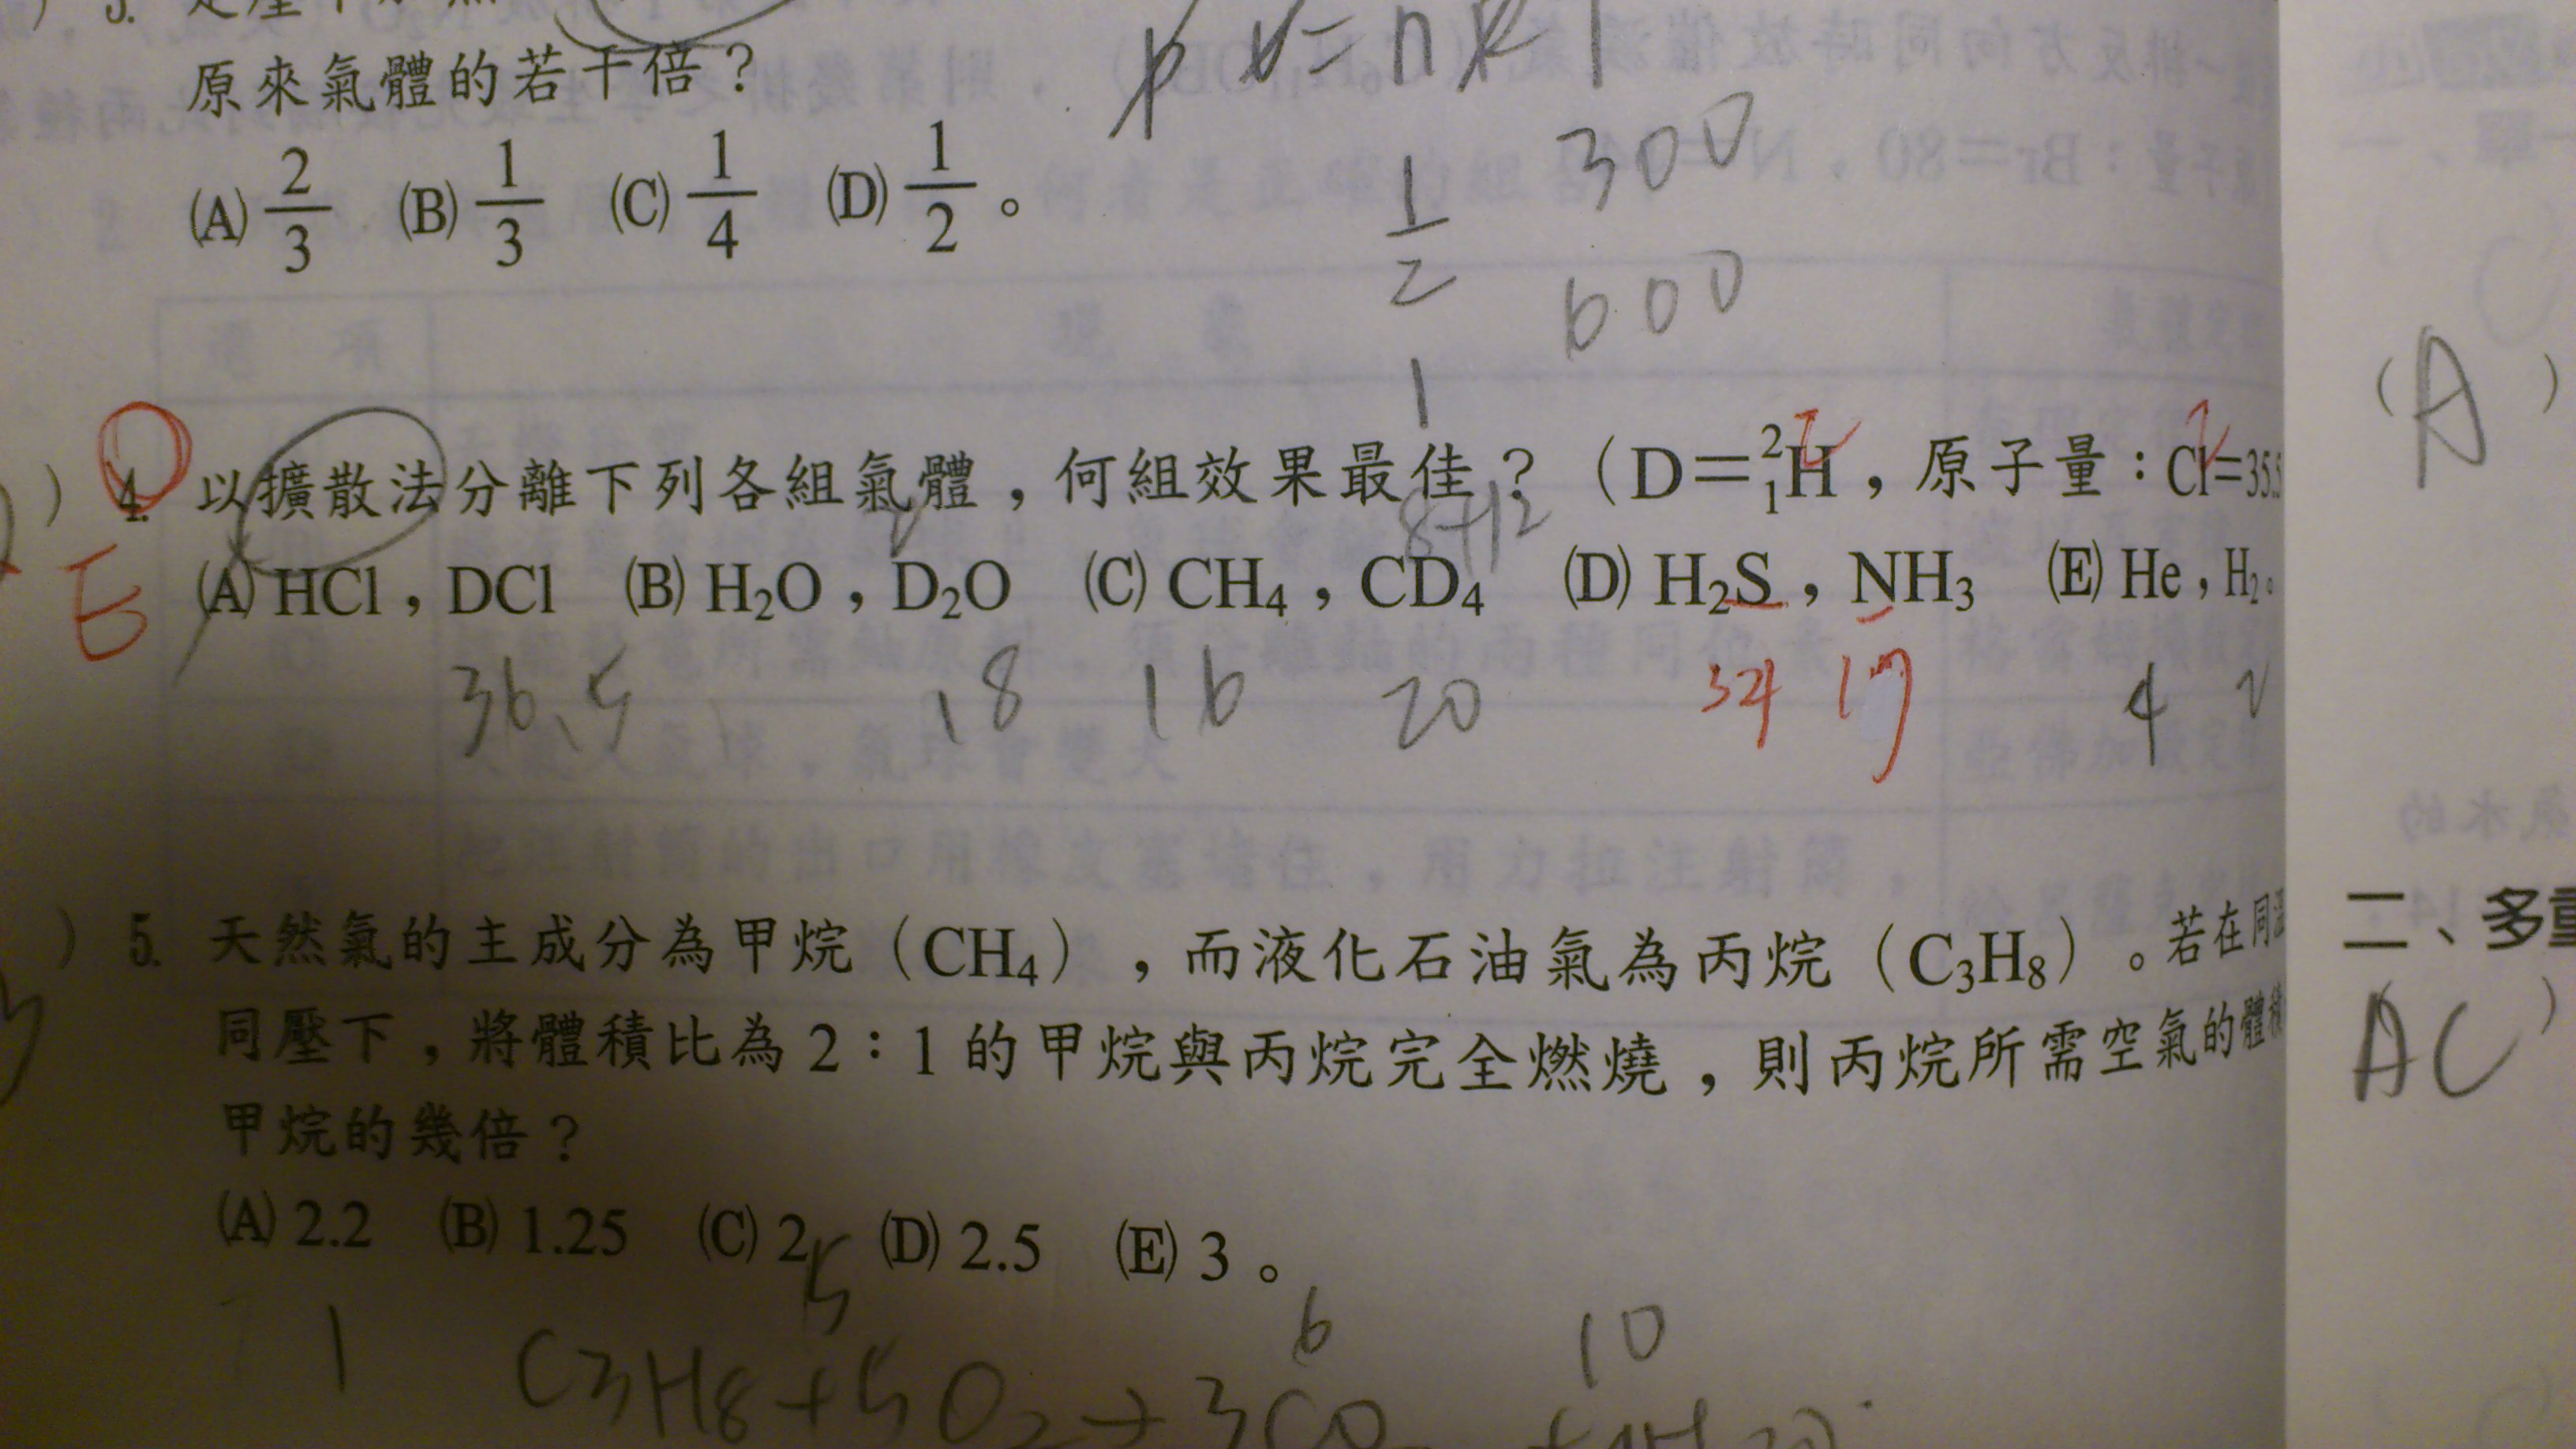 原來氣體的若干倍？
pv=nRT
(A) 2/3 (B) 1/3 (C) 1/4 (D) 1/2 。
1/2 300
600
1
(A)
) 4. 以擴散法分離下列各組氣體，何組效果最佳？（D=²₁H，原子量：Cl=35.5
8+12
E
(A) HCl，DCl (B) H₂O，D₂O (C) CH₄，CD₄ (D) H₂S，NH₃ (E) He，H₂。
36.5 18 16 20 34 17 4 2
) 5. 天然氣的主成分為甲烷（CH₄），而液化石油氣為丙烷（C₃H₈）。若在同溫
同壓下，將體積比為 2：1 的甲烷與丙烷完全燃燒，則丙烷所需空氣的體積
甲烷的幾倍？
(A) 2.2 (B) 1.25 (C) 2 (D) 2.5 (E) 3 。
5 6 10
1 C3H8+5O2→3CO
二、多重
AC )